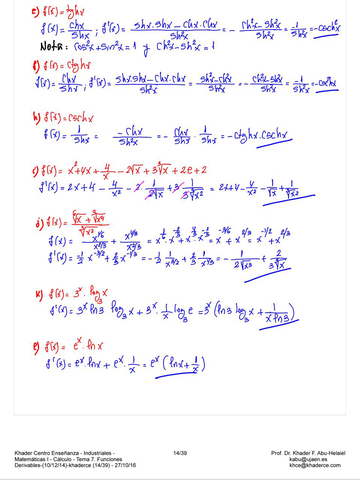 e) f(x) = tghx
f(x) = chx/shx ; f'(x) = shx.shx - chx.chx/sh²x = - ch²x - sh²x/sh²x = -1/sh²x = -csch²x
Nota: cos²x + sin²x = 1 y ch²x - sh²x = 1
f) f(x) = ctghx
f(x) = chx/shx ; f'(x) = shx.shx - chx.chx/sh²x = sh²x - ch²x/sh²x = - ch²x - sh²x/sh²x = -1/sh²x = -csch²x
h) f(x) = cschx
f(x) = 1/shx = -chx/sh²x = - chx/shx . 1/shx = -ctghx.cschx
i) f(x) = x² + 4x + 4/x - 2√x + 3∛x + 2e + 2
f'(x) = 2x + 4 - 4/x² - 2.1/2√x + 3.1/3∛x² = 2x + 4 - 4/x² - 1/√x + 1/∛x²
f'(x) = 3ˣ ln3 log₃x + 3ˣ . 1/x log₃e = 3ˣ (ln3 log₃x + 1/x ln3)
f(x) = eˣ . lnx
f'(x) = eˣ . lnx + eˣ . 1/x = eˣ (lnx + 1/x)
Khader Centro Enseñanza - Industriales -
Matemáticas I - Cálculo - Tema 7. Funciones
Derivables-(10/12/14)-khaderce (14/39) - 27/10/16
14/39
Prof. Dr. Khader F. Abu-Helaiel
kabu@ujaen.es
khce@khaderce.com